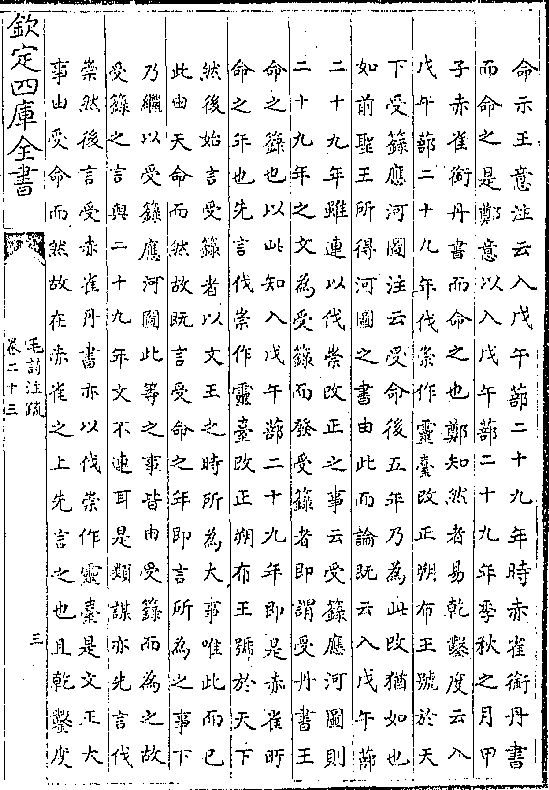 命示王意注云入戊午蔀二十九年時赤雀銜丹書
而命之是鄭意以入戊午蔀二十九年季秋之月甲
子赤雀銜丹書而命之也鄭知然者易乾鑿度云入
戊午蔀二十九年伐崇作靈臺改正朔布王號於天
下受籙應河圖注云受命後五年乃為此改猶如也
如前聖王所得河圖之書由此而論既云入戊午蔀
二十九年雖連以伐崇改正之事云受籙應河圖則
二十九年之文為受籙而發受籙者即謂受丹書王
命之籙也以此知入戊午蔀二十九年即是赤雀所
命之年也先言伐崇作靈臺改正朔布王號於天下
然後始言受籙者以文王之時所為大事唯此而已
此由天命而然故既言受命之年即言所為之事下
乃繼以受籙應河圖此等之事皆由受籙而為之故
受籙之言與二十九年文不連耳是類謀亦先言伐
崇然後言受赤雀丹書亦以伐崇作靈臺是文王大
事由受命而然故在赤雀之上先言之也且乾鑿度
欽定四庫全書
毛詩注疏
卷二十三
三